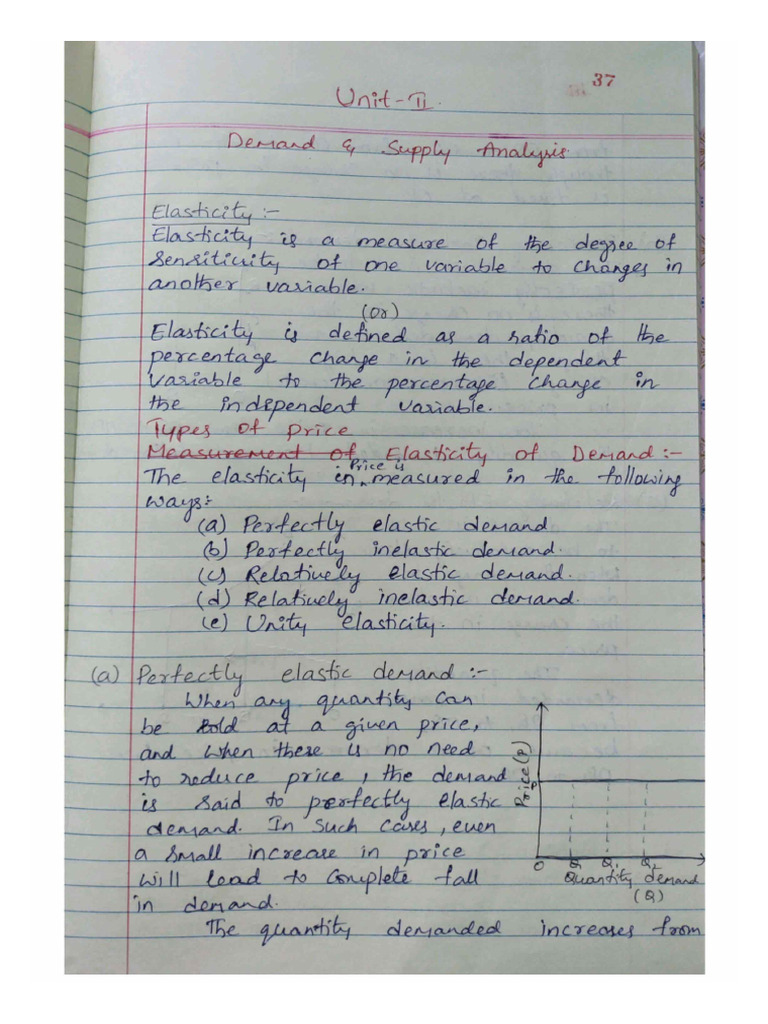 37
Unit-II.
Demand & Supply Analysis.
Elasticity :-
Elasticity is a measure of the degree of
sensiticity of one variable to changes in
another variable.
(or)
Elasticity is defined as a ratio of the
percentage change in the dependent
variable to the percentage change in
the independent variable.
Types of Price
Measurement of Elasticity of Demand :-
Price is
The elasticity in measured in the following
ways:-
(a) Perfectly elastic demand
(b) Perfectly inelastic demand.
(c) Relatively elastic demand.
(d) Relatively inelastic demand.
(e) Unity elasticity.
(a) Perfectly elastic demand :-
When any quantity can
be sold at a given price,
and when there is no need
to reduce price, the demand
is said to perfectly elastic
demand. In such cases, even
a small increase in price
will lead to complete fall
in demand.
Price(P)
P
O Q Q1 Q2
Quantity demand
(Q)
The quantity demanded increases from